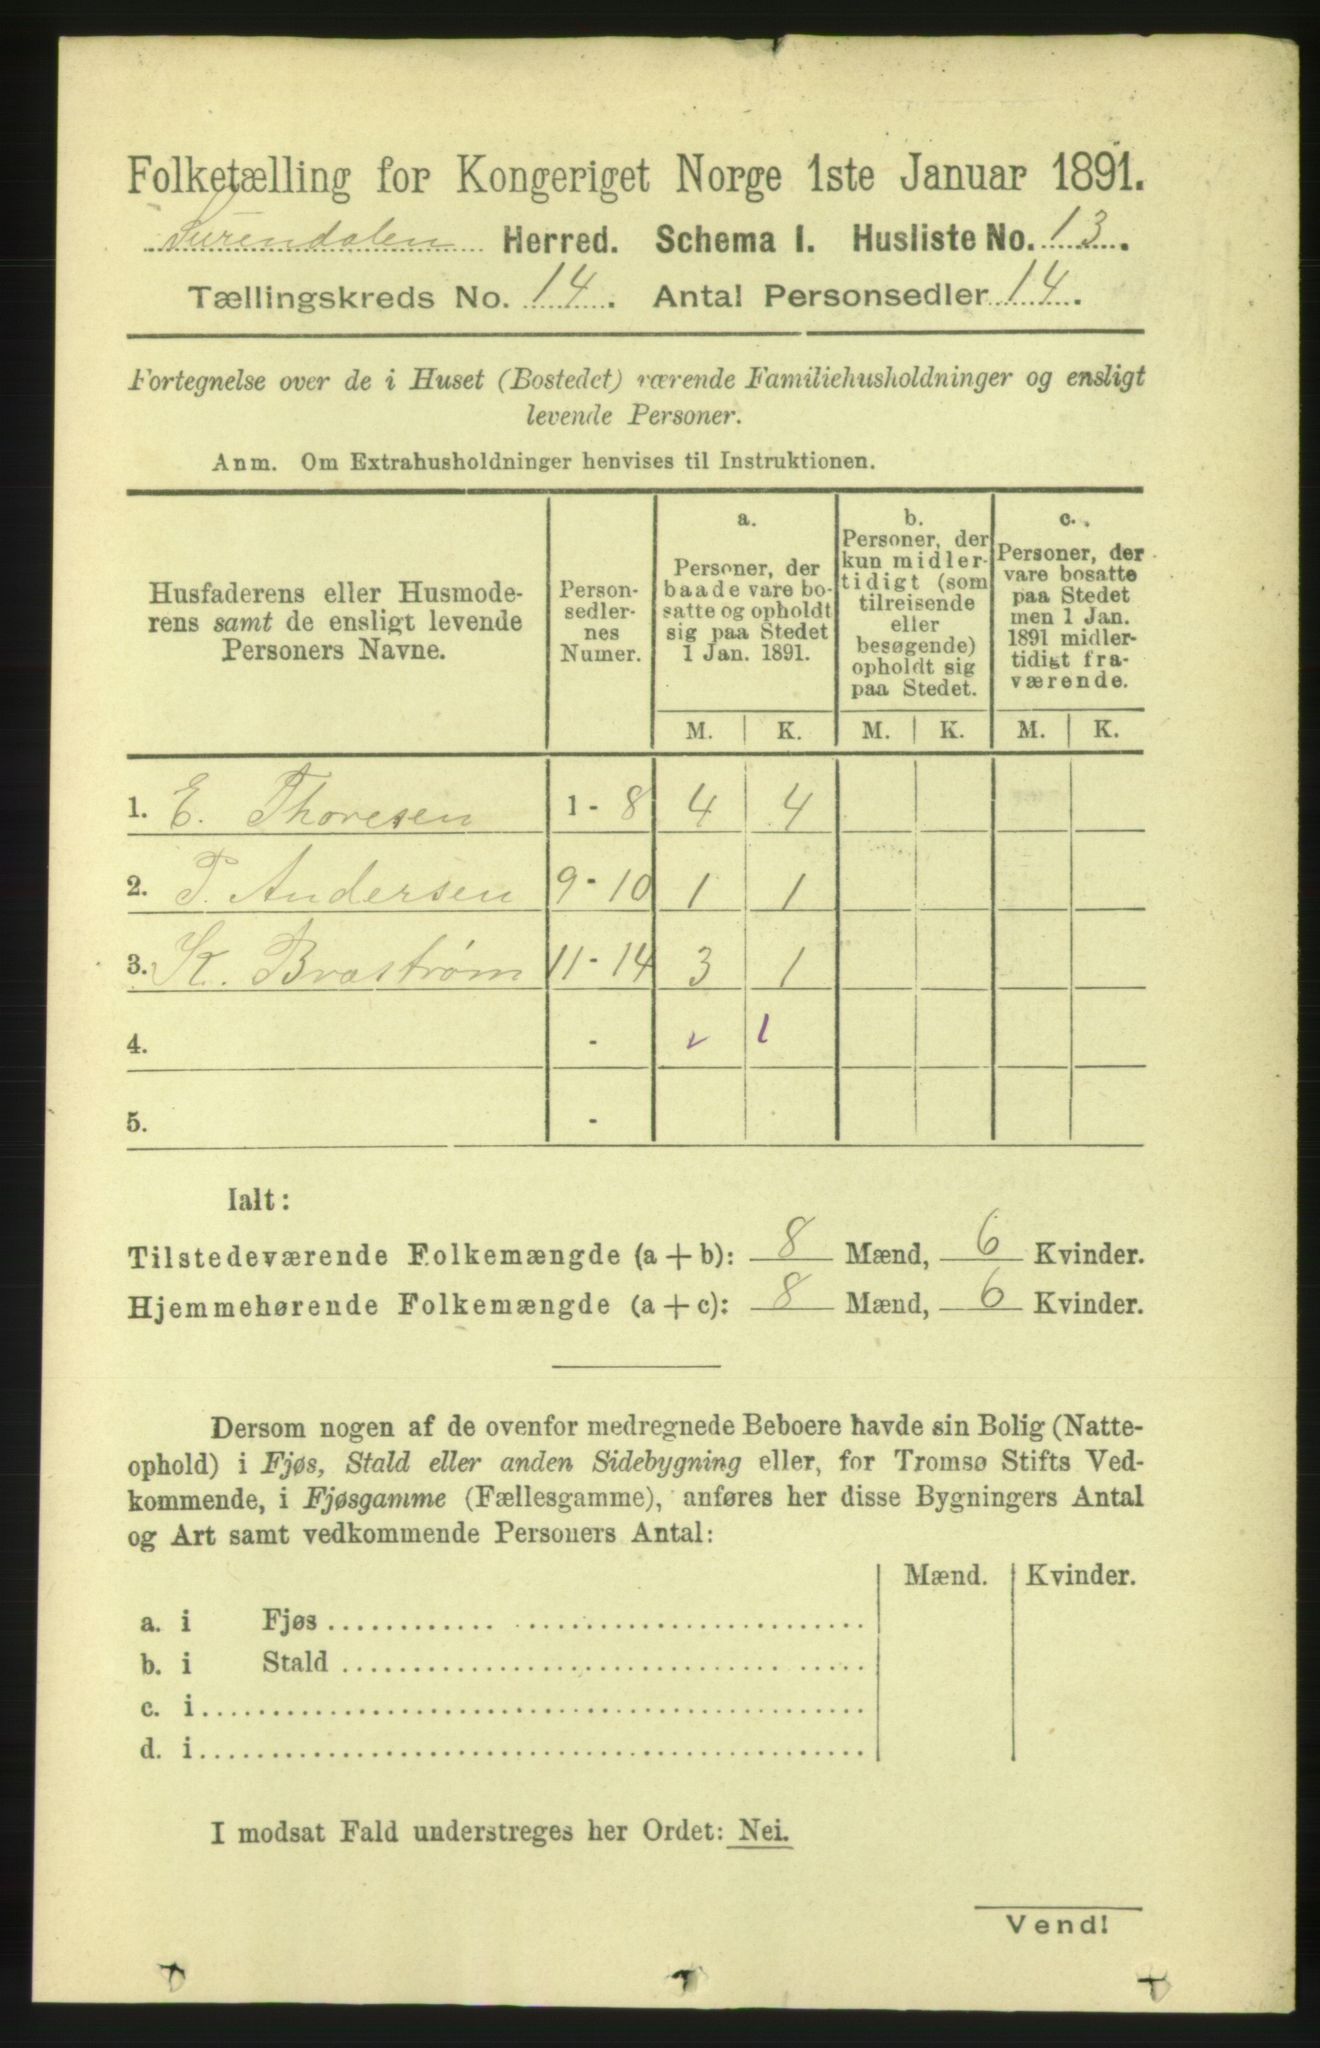 Folketælling for Kongeriget Norge 1ste Januar 1891.
Surendalen Herred. Schema I. Husliste No. 13.
Tællingskreds No. 14. Antal Personsedler 14.
Fortegnelse over de i Huset (Bostedet) værende Familiehusholdninger og ensligt
levende Personer.
Anm. Om Extrahusholdninger henvises til Instruktionen.
Husfaderens eller Husmode-
rens samt de ensligt levende
Personers Navne.
Person-
sedler-
nes
Numer.
a.
Personer, der
baade vare bo-
satte og opholdt
sig paa Stedet
1 Jan. 1891.
b.
Personer, der
kun midler-
tidigt (som
tilreisende
eller
besøgende)
opholdt sig
paa Stedet.
c.
Personer, der
vare bosatte
paa Stedet
men 1 Jan.
1891 midler-
tidigt fra-
værende.
M. K. M. K. M. K.
1. E. Thoresen 1 - 8 4 4
2. P. Andersen 9 - 10 1 1
3. K. Bræstrøm 11 - 14 3 1
4. - v 1
5. -
Ialt:
Tilstedeværende Folkemængde (a + b): 8 Mænd, 6 Kvinder.
Hjemmehørende Folkemængde (a + c): 8 Mænd, 6 Kvinder.
Dersom nogen af de ovenfor medregnede Beboere havde sin Bolig (Natte-
ophold) i Fjøs, Stald eller anden Sidebygning eller, for Tromsø Stifts Ved-
kommende, i Fjøsgamme (Fællesgamme), anføres her disse Bygningers Antal
og Art samt vedkommende Personers Antal:
Mænd. Kvinder.
a. i Fjøs
b. i Stald
c. i
d. i
I modsat Fald understreges her Ordet: Nei.
Vend!